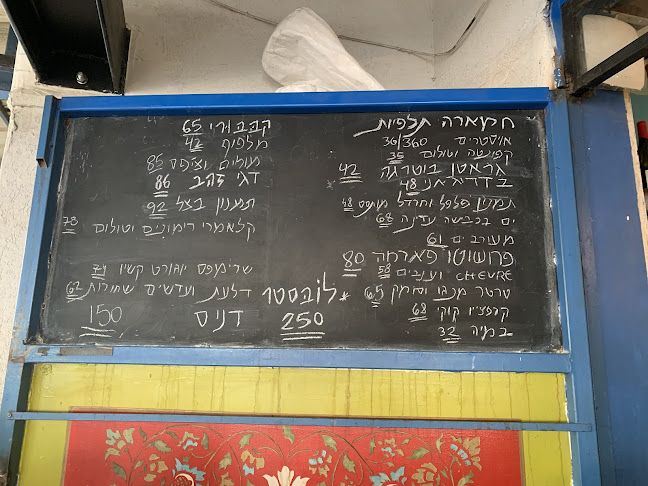 חצארה תלפיות
אויסטרים 36/360
קפיצה וטולום 35
גראטן בוטרגה 42
48
תמנון פלפל וחרדל מותסס 48
ים בכבשה עדינה 68
מעורבים 61
פרושוטו פארמה 80
CHEVRE וענבים 58
טרטר מנגו וסומק 65
קרפציו קוקי 68
במיה 32
קבבורי 65
מלפוף 42
מולים וציפס 85
דגי זהב 86
תמנון בצל 92
קלאמרי רימונים וטולום 78
שרימפס יוגורט קשיו 71
דלעת ועדשים שחורות 62
דניס 150
*לובסטר
250